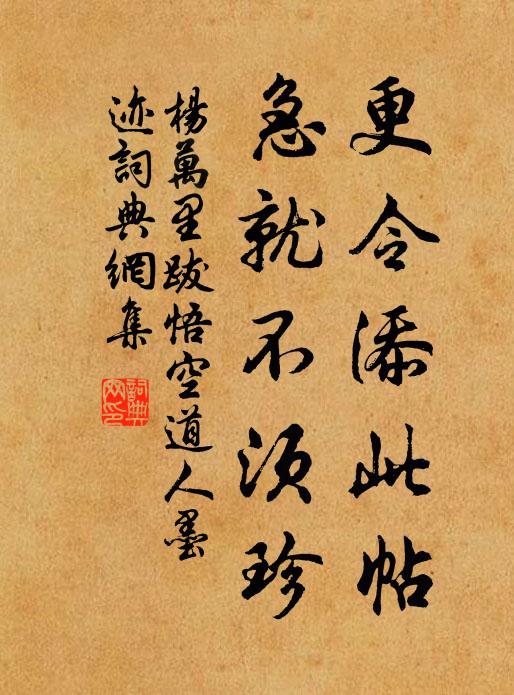 更令添此帖
急就不須珍
楊萬里跋悟空道人墨
迹詞典網集
詞典
网印